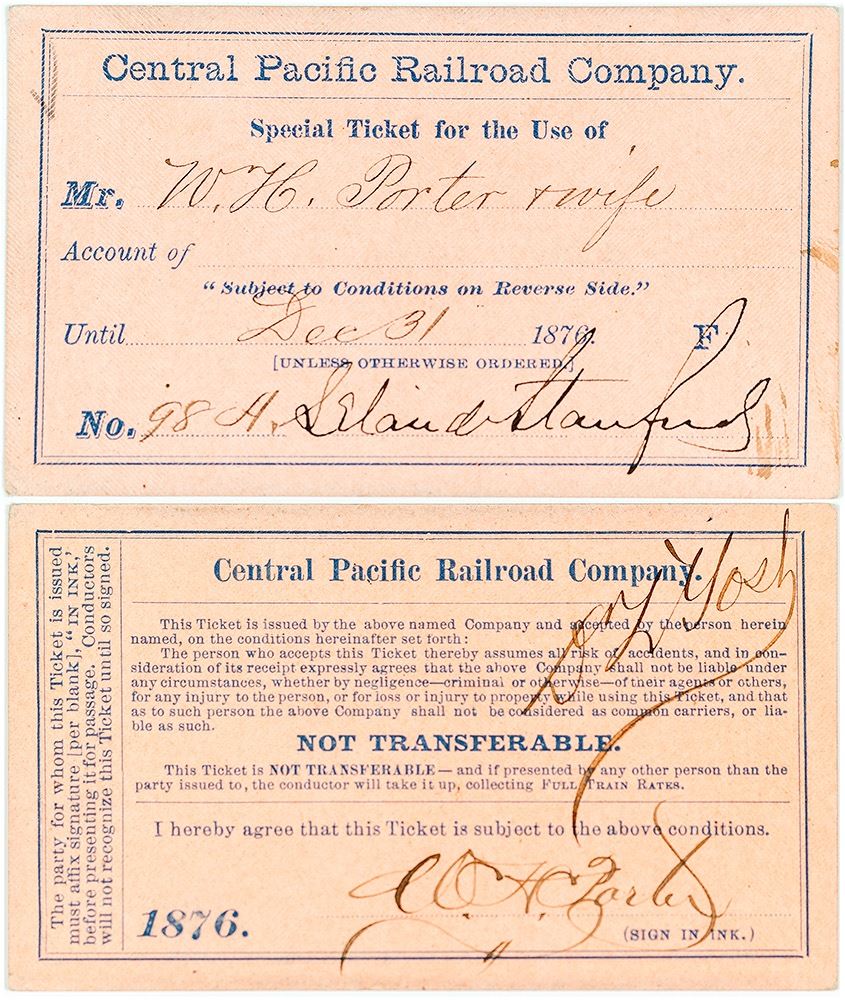 Central Pacific Railroad Company.
Special Ticket for the Use of
Mr. W. H. Porter + wife
Account of
"Subject to Conditions on Reverse Side."
Until Dec 31 1876. F
[UNLESS OTHERWISE ORDERED.]
No. 98 H. Leland Stanford
The party for whom this Ticket is issued
must affix signature [per blank], "IN INK,"
before presenting it for passage. Conductors
will not recognize this Ticket until so signed.
Central Pacific Railroad Company.
This Ticket is issued by the above named Company and accepted by the person herein
named, on the conditions hereinafter set forth:
The person who accepts this Ticket thereby assumes all risk of accidents, and in con-
sideration of its receipt expressly agrees that the above Company shall not be liable under
any circumstances, whether by negligence—criminal or otherwise—of their agents or others,
for any injury to the person, or for loss or injury to property while using this Ticket, and that
as to such person the above Company shall not be considered as common carriers, or lia-
ble as such.
NOT TRANSFERABLE.
This Ticket is NOT TRANSFERABLE — and if presented by any other person than the
party issued to, the conductor will take it up, collecting FULL TRAIN RATES.
I hereby agree that this Ticket is subject to the above conditions.
W. H. Porter
1876.
(SIGN IN INK.)